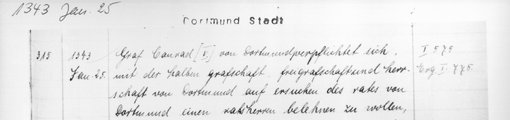 1343 Jan. 25
Dortmund Stadt
315 1343 Graf Conrad [V] von Dortmund verpflichtet sich, I 575
Jan 25. mit der halben grafschaft, freigrafschaft und herr- Erg I 775.
schaft von Dortmund auf ersuchen des rates von
Dortmund einen ratsherren belehnen zu wollen,